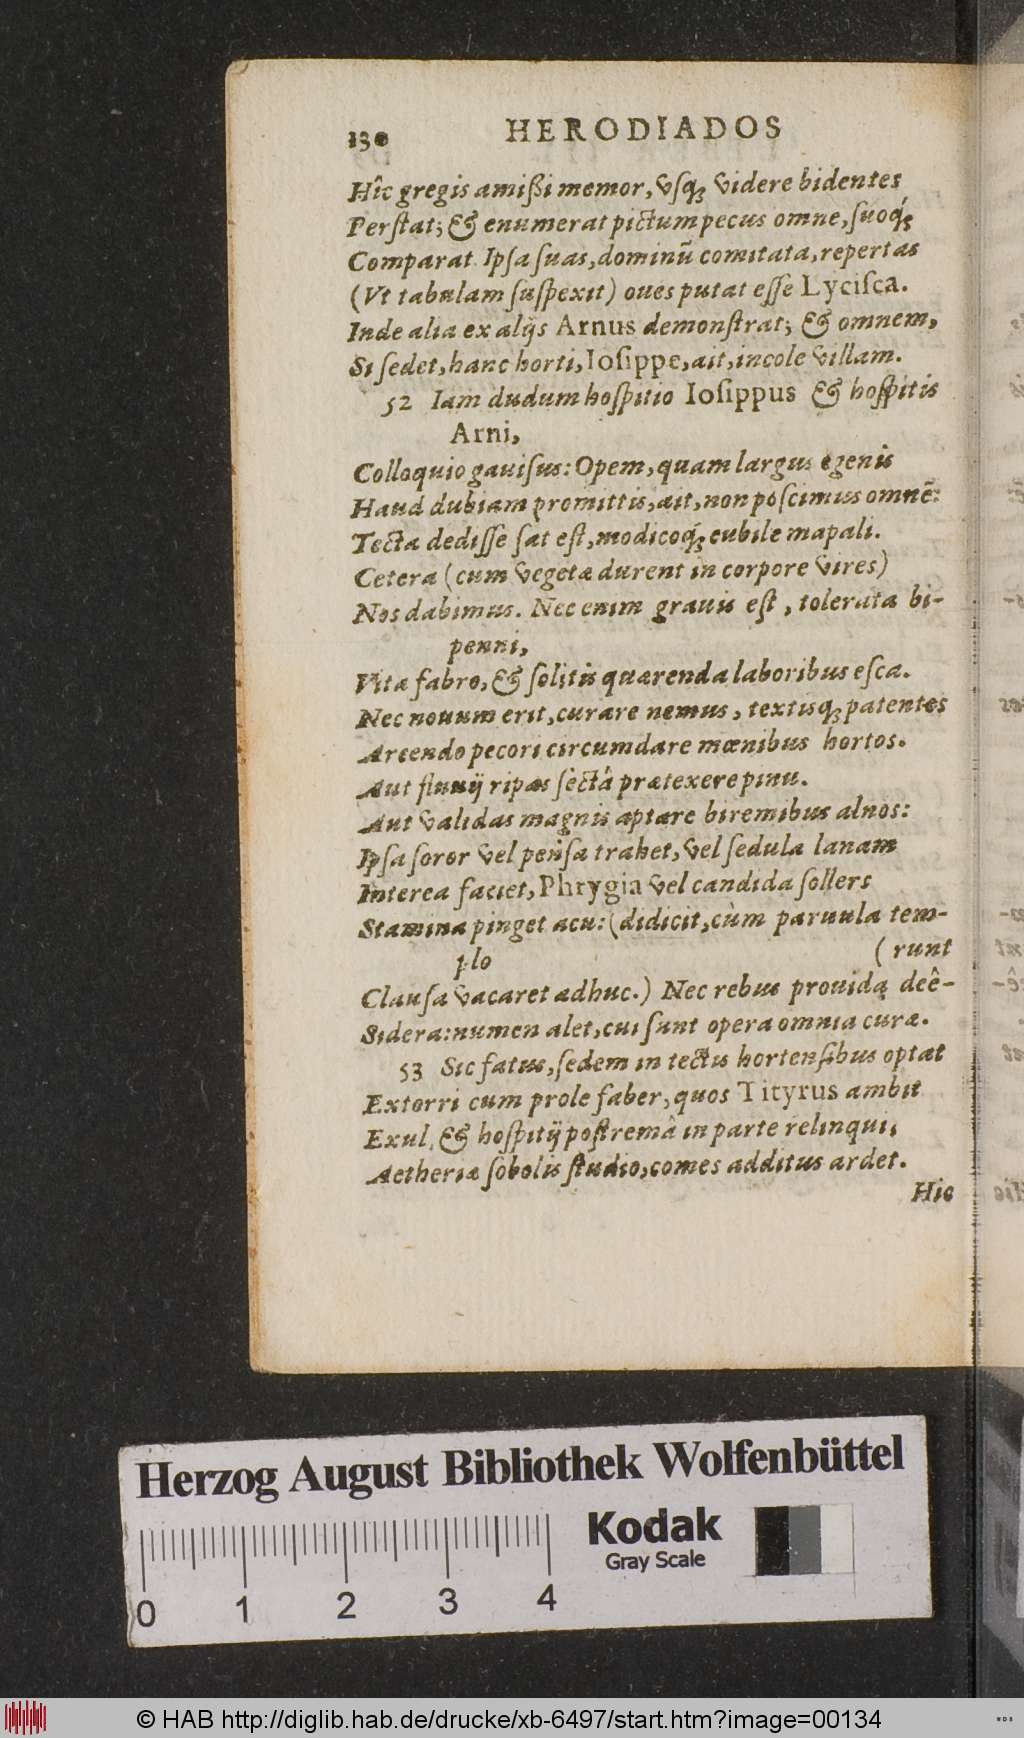 130 HERODIADOS
Hîc gregis amißi memor, vsq; videre bidentes
Perstat; & enumerat pictum pecus omne, suoq́;
Comparat. Ipsa suas, dominū comitata, repertas
(Vt tabulam suspexit) oues putat esse Lycisca.
Inde alia ex alijs Arnus demonstrat; & omnem,
Si sedet, hanc horti, Iosippe, ait, incole villam.
52 Iam dudum hospitio Iosippus & hospitis
Arni,
Colloquio gauisus: Opem, quam largus egenis
Haud dubiam promittis, ait, non poscimus omnē:
Tecta dedisse sat est, modicoq́; cubile mapali.
Cetera (cum vegetæ durent in corpore vires)
Nos dabimus. Nec enim grauis est, tolerata bi-
penni,
Vita fabro, & solitis quærenda laboribus esca.
Nec nouum erit, curare nemus, textisq; patentes
Arcendo pecori circumdare mœnibus hortos.
Aut fluuij ripas sectâ prætexere pinu.
Aut validas magnis aptare biremibus alnos:
Ipsa soror vel pensa trahet, vel sedula lanam
Interea faciet, Phrygia vel candida sollers
Stamina pinget acu: (didicit, cùm paruula tem-
plo (runt
Clausa vacaret adhuc.) Nec rebus prouida deê-
Sidera: numen alet, cui sunt opera omnia curæ.
53 Sic fatus, sedem in tectis hortensibus optat
Extorri cum prole faber, quos Tityrus ambit
Exul, & hospitij postremâ in parte relinqui,
Aetheriæ sobolis studio, comes additus ardet.
Hic
Herzog August Bibliothek Wolfenbüttel
Kodak
Gray Scale
0 1 2 3 4
© HAB http://diglib.hab.de/drucke/xb-6497/start.htm?image=00134